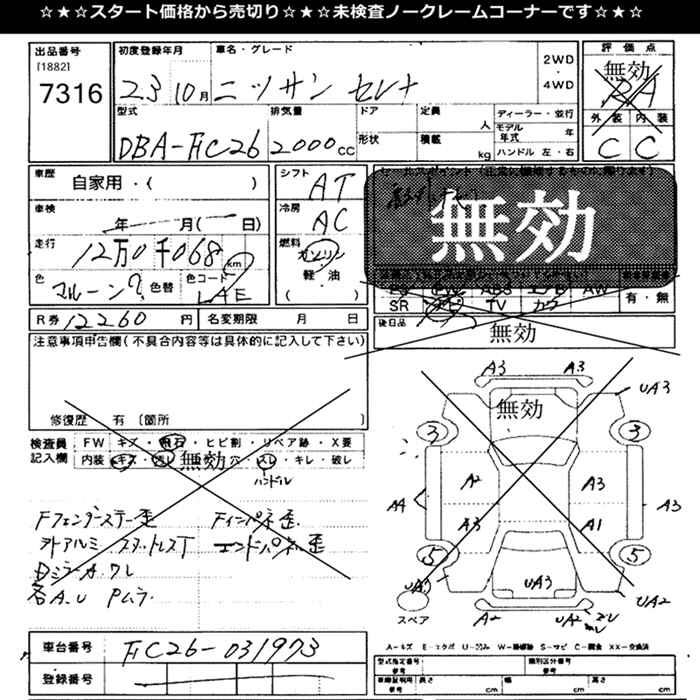 ☆★☆スタート価格から売切り☆★☆未検査ノークレームコーナーです☆★☆
出品番号
[1882]
7316
初度登録年月
23 10月
車名・グレード
ニッサン セレナ
2WD
・
4WD
評価点
無効
RA
外装 内装
C C
型式
DBA-FC26
排気量
2000cc
ドア
形状
定員
人
積載
kg
ディーラー・並行
モデル年式 年
ハンドル 左・右
車歴
自家用・( )
車検
年 月( 日)
走行
12万0千068 km
色
マルーン?
色替
色コード
LAE
シフト
AT
冷房
AC
燃料
ガソリン
軽油
( )
無効
PW ABS エアB AW
SR ナビ TV カワ
有・無
R券 12260円
名変期限 月 日
後日品
無効
注意事項申告欄(不具合内容等は具体的に記入して下さい)
修復歴 有 [箇所 ]
検査員記入欄
FW キズ・飛石・ヒビ割・リペア跡・X要
内装 キズ・汚レ・穴・スレ・キレ・破レ
無効
ハンドル
Fフェンダーステー歪 Fインパネ歪
外アルミ スタットレスT エンドパネル歪
Dミラー A ワレ
各A.U Pムラ
無効
A3 A3
UA3
3 3
A2 A3
A4 A3
A3 A1
5 5
UA3
UA2
スペア
A2 UA2
A-キズ E-エクボ U-凹み W-補修跡 S-サビ C-腐食 XX-交換済
車台番号
FC26-031973
登録番号
型式指定番号 参考
類別区分番号 参考
車輌証明用 参考
長さ cm
幅 cm
高さ cm